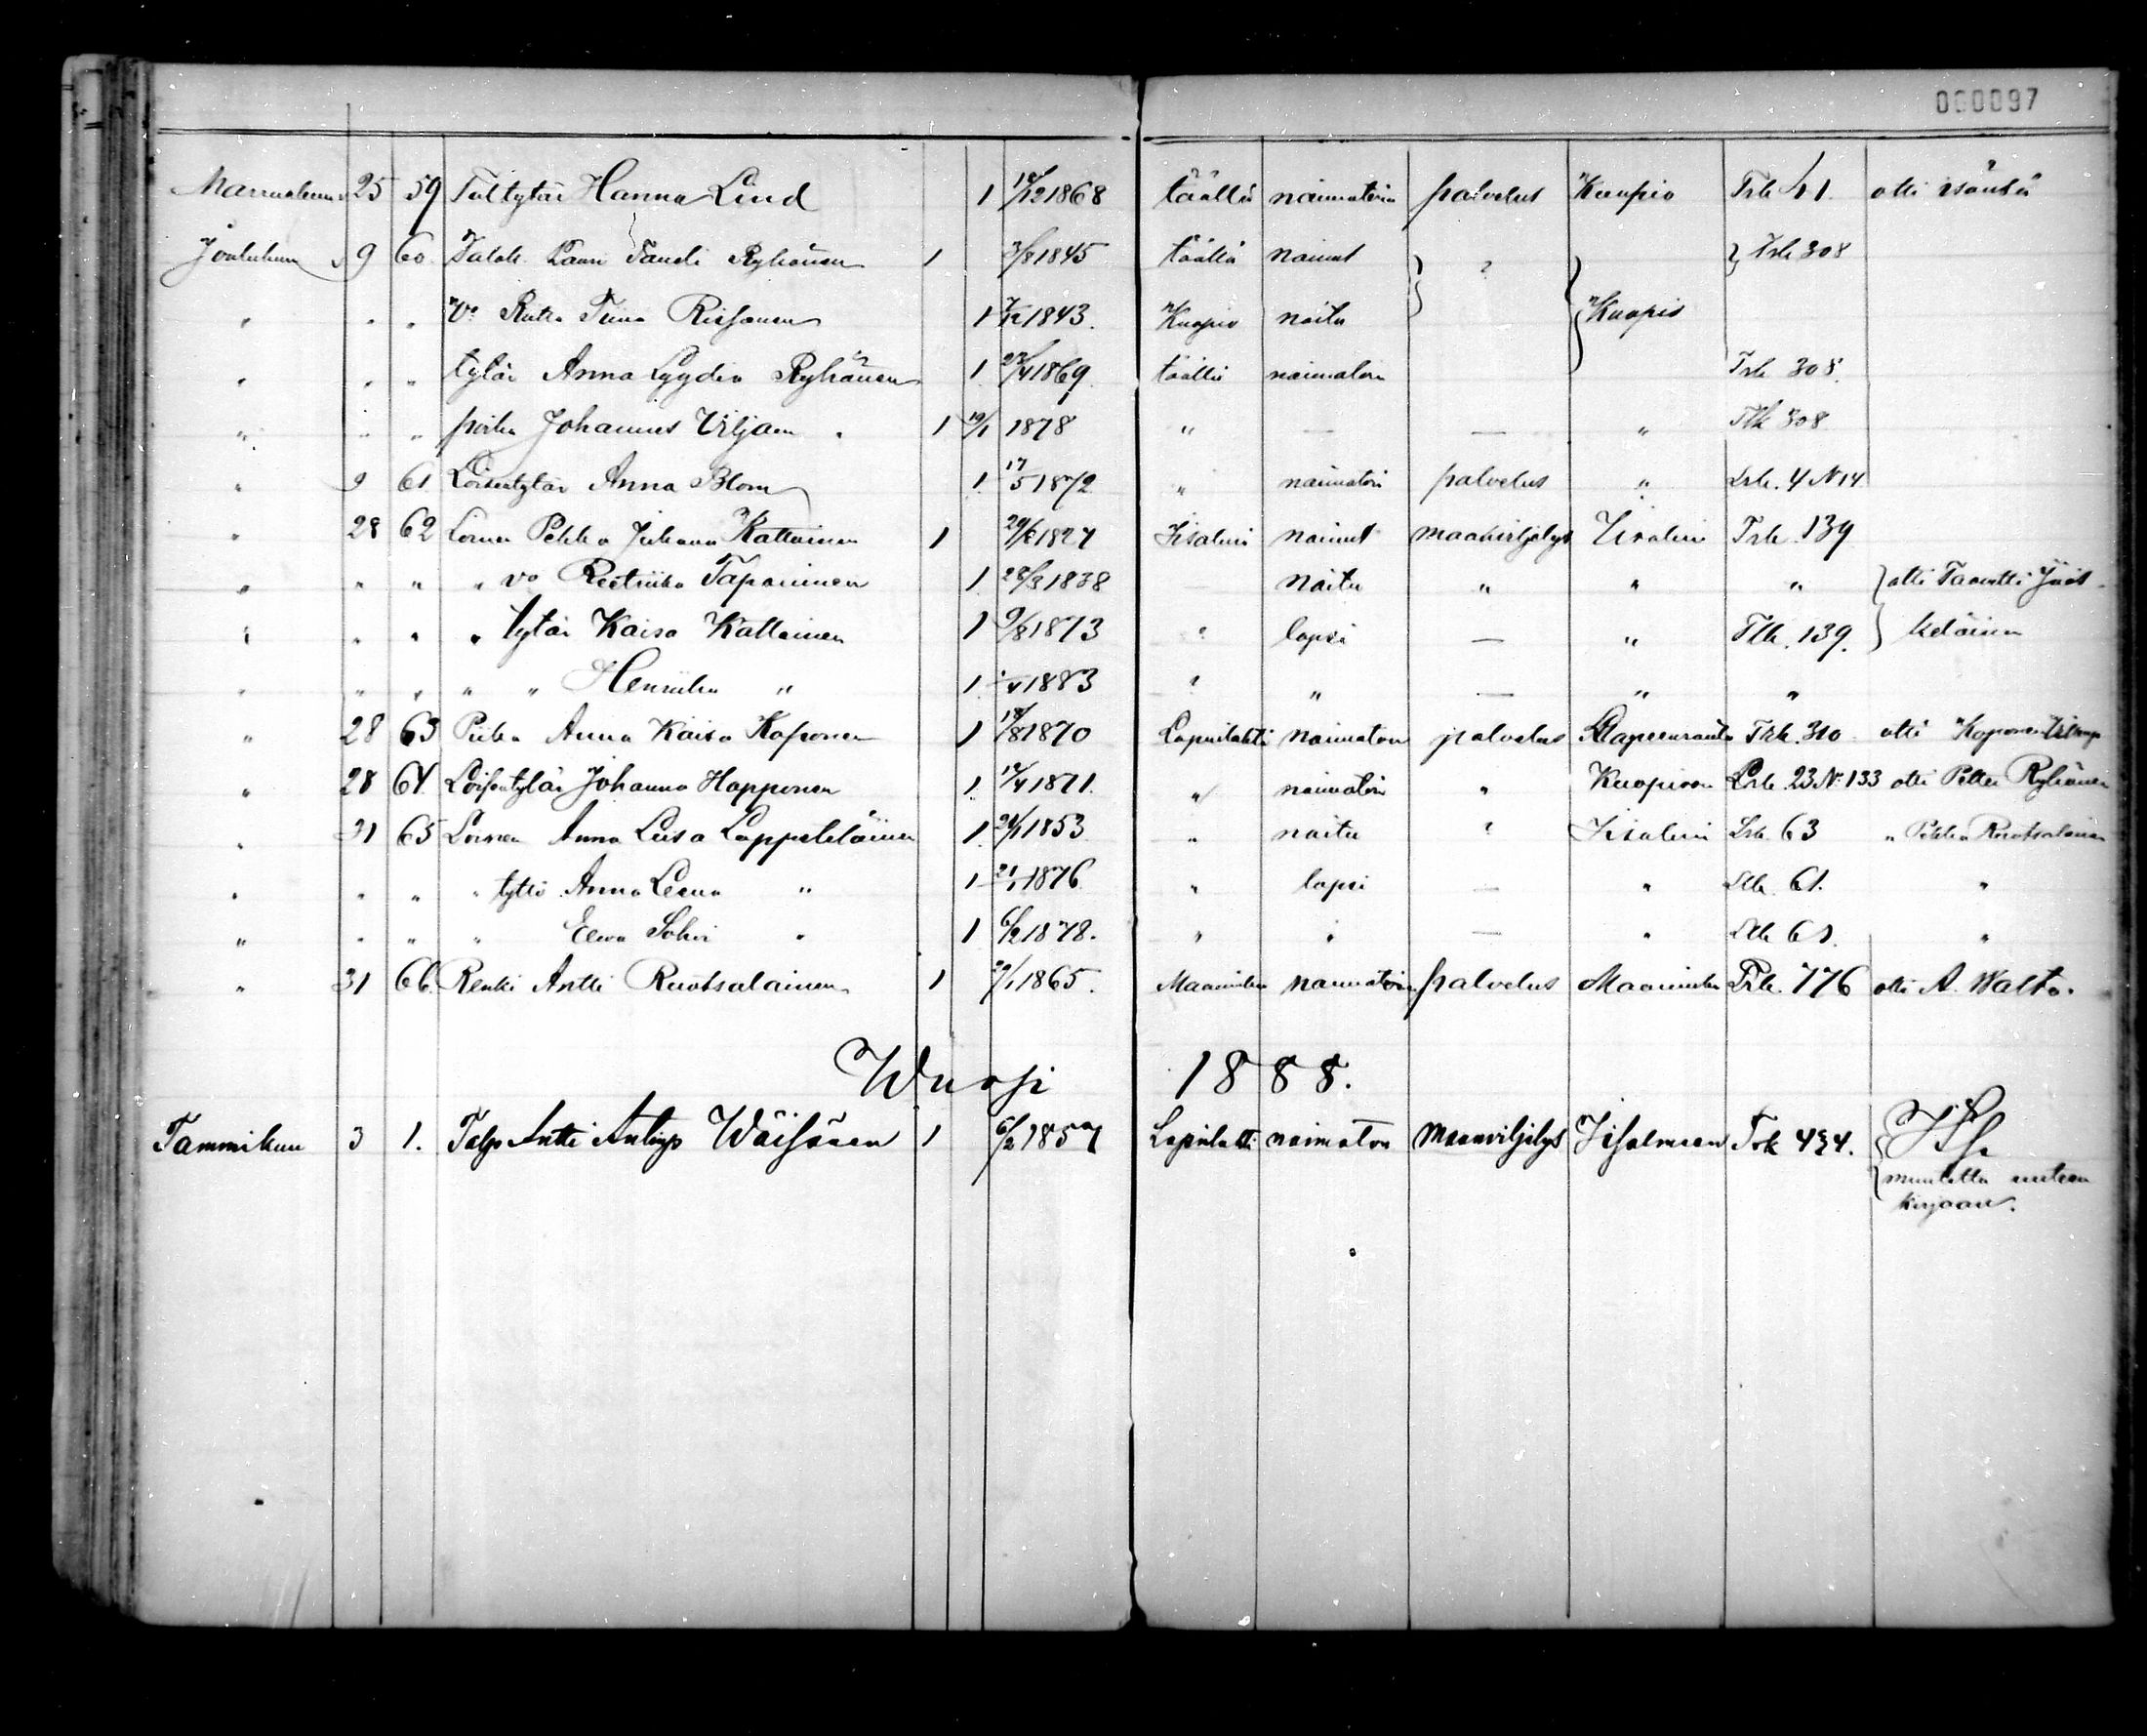 000097
Marraskuun 25 59 Taltytär Hanna Lind 1 18/12 1868 täällä naimatoin palvelus Kuopio Trk 41. otti isäntä
Joulukuun 9 60. Talok. Lauri Taneli Ryhänen 1 3/8 1845 täällä nainut ? } Trk 308
" " " Vo Riitta Tiina Rissanen 1 7/12 1843. Kuopio naitu Kuopio
" " " tytär Anna Lyydia Ryhänen 1 27/4 1869. täällä naimatoin Trk 308.
" " " poika Johannes Viljam " 1 19/1 1878 " — — " Tlk 308
" 9 61. Loisentytär Anna Blom 1. 17/5 1872 " naimatoin palvelus " Lrk. 4 N 14
" 28 62 Loinen Pekka Juhana Kattainen 1 29/6 1827 Iisalmi nainut maanviljelys Iisalmi Trk. 139
" " " " vo Reetriika Taponinen 1. 28/3 1838 naitu " " " } otti Taavetti Jääs-
" " " " tytär Kaisa Kattainen 1 9/8 1873 ? lapsi — " Tlk. 139. } keläinen
" " " " " Henriika " 1. /4 1883 ? " — " "
" 28 63 Piika Anna Kaisa Koponen 1 18/8 1870 Lapinlahti naimaton palvelus Lappeenranta Trk. 310 otti Koponen
" 28 64. Loisentytär Johanna Happonen 1. 17/4 1871. " naimatoin " Kuopioon Lrk. 23 N: 133 otti Petter Ryhänen
" 31 65 Loinen Anna Liisa Lappeteläinen 1. 24/1 1853 " naitu ? Iisalmi Lrk. 63 " Pekka Ruotsalainen
" " " " tyttö Anna Leena " 1 21/1 1876 " lapsi — " Llk. 61. "
" " " " Eeva Sohvi " 1 6/2 1878. " " — " Llk 61. "
" 31 66. Renki Antti Ruotsalainen 1 /1 1865. Maaninka naimatoin palvelus Maaninka Lrk. 776 otti A. Walta.
Wuosi 1888.
Tammikuu 3 1. Talps Antti Antinp Wäisänen 1 6/2 1857 Lapinlahti naimaton Maanviljelys Iisalmeen Trk 434.
muutettu uuteen
kirjaan.